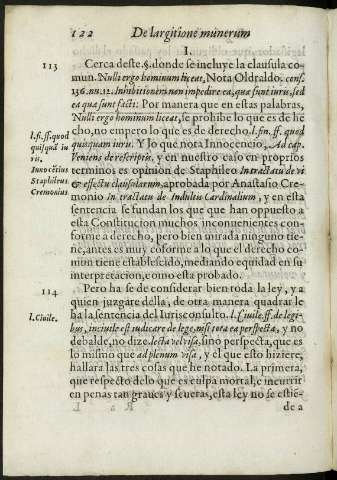 122 De largitione munerum
I.
113
Cerca deste.§.donde se incluye la clausula co
mun. Nulli ergo hominum liceat, Nota Oldraldo. cons.
136.nu.12. In inhibitionem non impedire ea, quæ funt iuris, sed
ea quæ sunt facti: Por manera que en estas palabras,
Nulli ergo hominum liceat, se prohibe lo que es de he
cho, no empero lo que es de derecho. l. fin. ff. quod
quisquam iuris. Y lo que nota Innocencio, Ad cap.
Veniens de rescriptis, y en nuestro caso en proprios
terminos es opinion de Staphileo In tractatu de vi
& effectu clausolarum, aprobada por Anastasio Cre-
monio In tractatu de Indultu Cardinalium, y en esta
sentencia se fundan los que han oppuesto a
esta Constitucion muchos inconuenientes con-
forme a derecho, pero bien mirada ninguno tie
ne, antes es muy coforme a lo que el derecho co
mun tiene establescido, mediando equidad en su
interpretacion, como esta probado.
l. fi. ff. quod
quisquā iu
ris.
Innocētius
Staphileus
Cremonius.
114
Pero ha se de considerar bien toda la ley, y a
quien juzgare della, de otra manera quadrar le
ha la sentencia del Iurisconsulto. l. Ciuile. ff. de legi-
bus, inciuile est iudicare de lege, nisi tota ea perspecta, y no
debalde, no dize. lecta vel visa, sino perspecta, que es
lo mismo que ad plenum visa, y el que esto hiziere,
hallara las tres cosas que he notado. La primera,
que respecto de lo que es culpa mortal, e incurrir
en penas tan graues y seueras, esta ley no se estiē-
l. Ciuile.
de a